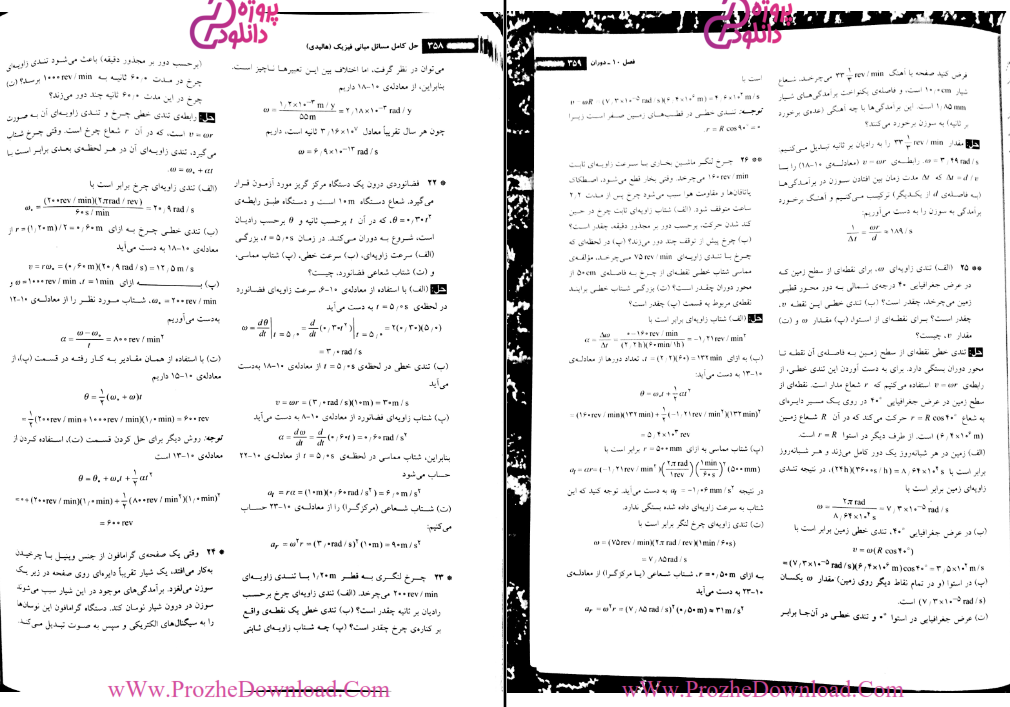 پروژه دانلود
۳۵۸ حل کامل مسائل مبانی فیزیک (هالیدی)
می‌توان در نظر گرفت، اما اختلاف بین این تعبیرها ناچیز است.
بنابراین، از معادله‌ی ۱۰-۱۸ داریم
ω = ۱٫۲×۱۰⁻۳ m/y / ۵۵m = ۲٫۱۸×۱۰⁻۳ rad/y
چون هر سال تقریباً معادل ۳٫۱۶×۱۰⁷ ثانیه است، داریم
ω = ۶٫۹×۱۰⁻۱۳ rad/s
* ۲۲ فضانوردی درون یک دستگاه مرکز گریز مورد آزمون قرار
می‌گیرد. شعاع دستگاه ۱۰m است و دستگاه طبق رابطه‌ی
θ=۰٫۳۰t²، که در آن t برحسب ثانیه و θ برحسب رادیان
است، شروع به دوران می‌کند. در زمان t=۵٫۰s، بزرگی
(الف) سرعت زاویه‌ای، (ب) سرعت خطی، (پ) شتاب مماسی،
و (ت) شتاب شعاعی فضانورد، چیست؟
حل: (الف) با استفاده از معادله‌ی ۱۰-۶، سرعت زاویه‌ای فضانورد
در لحظه‌ی t = ۵٫۰s به دست می‌آید
ω = dθ/dt |t=۵٫۰ = d/dt (۰٫۳۰t²) |t=۵٫۰ = ۲(۰٫۳۰)(۵٫۰)
= ۳٫۰ rad/s
(ب) تندی خطی در لحظه‌ی t = ۵٫۰s از معادله‌ی ۱۰-۱۸ به‌دست
می‌آید
v = ωr = (۳٫۰ rad/s)(۱۰m) = ۳۰m/s
(پ) شتاب زاویه‌ای فضانورد از معادله‌ی ۱۰-۸ به دست می‌آید
α = dω/dt = d/dt (۰٫۶۰t) = ۰٫۶۰ rad/s²
بنابراین، شتاب مماسی در لحظه‌ی t = ۵٫۰s از معادله‌ی ۱۰-۲۲
حساب می‌شود
aₜ = rα = (۱۰m)(۰٫۶۰rad/s²) = ۶٫۰ m/s²
(ت) شتاب شعاعی (مرکزگرا) را از معادله‌ی ۱۰-۲۳ حساب
می‌کنیم:
aᵣ = ω²r = (۳٫۰rad/s)²(۱۰m) = ۹۰m/s²
* ۲۳ چرخ لنگری به قطر ۱٫۲۰m با تندی زاویه‌ای
۲۰۰rev/min می‌چرخد. (الف) تندی زاویه‌ای چرخ برحسب
رادیان بر ثانیه چقدر است؟ (ب) تندی خطی یک نقطه‌ی واقع
بر کناره‌ی چرخ چقدر است؟ (پ) چه شتاب زاویه‌ای ثابتی
(برحسب دور بر مجذور دقیقه) باعث می‌شود تندی زاویه‌ای
چرخ در مدت ۶۰٫۰ ثانیه به ۱۰۰۰rev/min برسد؟ (ت)
چرخ در این مدت ۶۰٫۰ ثانیه چند دور می‌زند؟
حل: رابطه‌ی تندی خطی چرخ و تندی زاویه‌ای آن به صورت
v = ωr است، که در آن r شعاع چرخ است. وقتی چرخ شتاب
می‌گیرد، تندی زاویه‌ای آن در هر لحظه‌ی بعدی برابر است با
ω = ω₀ + αt.
(الف) تندی زاویه‌ای چرخ برابر است با
ω₀ = (۲۰۰rev/min)(۲π rad/rev) / ۶۰s/min = ۲۰٫۹ rad/s
(ب) تندی خطی چرخ به ازای r = (۱٫۲۰m)/۲ = ۰٫۶۰m از
معادله‌ی ۱۰-۱۸ به دست می‌آید
v = rω₀ = (۰٫۶۰m)(۲۰٫۹ rad/s) = ۱۲٫۵ m/s
(پ) به ازای t = ۱min، ω = ۱۰۰۰rev/min و
ω₀ = ۲۰۰rev/min، شتاب مورد نظر را از معادله‌ی ۱۰-۱۲
به‌دست می‌آوریم
α = ω-ω₀ / t = ۸۰۰ rev/min²
(ت) با استفاده از همان مقادیر به کار رفته در قسمت (پ)، از
معادله‌ی ۱۰-۱۵ داریم
θ = ۱/۲ (ω₀ + ω)t
= ۱/۲ (۲۰۰rev/min + ۱۰۰۰rev/min)(۱٫۰min) = ۶۰۰rev
توجه: روش دیگر برای حل کردن قسمت (ت)، استفاده کردن از
معادله‌ی ۱۰-۱۳ است
θ = θ₀ + ω₀t + ۱/۲ αt²
= ۰ + (۲۰۰rev/min)(۱٫۰min) + ۱/۲ (۸۰۰rev/min²)(۱٫۰min)²
= ۶۰۰rev
* ۲۴ وقتی یک صفحه‌ی گرامافون از جنس وینیل با چرخیدن
به‌کار می‌افتد، یک شیار تقریباً دایره‌ای روی صفحه در زیر یک
سوزن می‌لغزد. برآمدگی‌های موجود در این شیار سبب می‌شوند
سوزن در درون شیار نوسان کند. دستگاه گرامافون این نوسان‌ها
را به سیگنال‌های الکتریکی و سپس به صوت تبدیل می‌کند.
wWw.ProzheDownload.Com
پروژه دانلود
فصل ۱۰ـ دوران ۳۵۹
فرض کنید صفحه با آهنگ ۳۳ ۱/۳ rev/min می‌چرخد، شعاع
شیار ۱۰٫۰cm است، و فاصله‌ی یکنواخت برآمدگی‌های شیار
۱٫۸۵mm است. این برآمدگی‌ها با چه آهنگی (عده‌ی برخورد
بر ثانیه) به سوزن برخورد می‌کنند؟
حل: مقدار ۳۳ ۱/۳ rev/min را به رادیان بر ثانیه تبدیل می‌کنیم:
ω = ۳٫۴۹ rad/s. رابطه‌ی v = ωr (معادله‌ی ۱۰-۱۸) را با
Δt = d/v که Δt مدت زمان بین افتادن سوزن در برآمدگی‌ها
(به فاصله‌ی d از یکدیگر) ترکیب می‌کنیم و آهنگ برخورد
برآمدگی به سوزن را به دست می‌آوریم:
۱/Δt = ωr/d = ۱۸۹/s
** ۲۵ (الف) تندی زاویه‌ای ω، برای نقطه‌ای از سطح زمین که
در عرض جغرافیایی ۴۰ درجه‌ی شمالی به دور محور قطبی
زمین می‌چرخد، چقدر است؟ (ب) تندی خطی این نقطه v،
چقدر است؟ برای نقطه‌ای از استوا (پ) مقدار ω و (ت)
مقدار v، چیست؟
حل: تندی خطی نقطه‌ای از سطح زمین به فاصله‌ی آن نقطه تا
محور دوران بستگی دارد. برای به دست آوردن این تندی خطی، از
رابطه‌ی v = ωr استفاده می‌کنیم که r شعاع مدار است. نقطه‌ای از
سطح زمین در عرض جغرافیایی ۴۰° در روی یک مسیر دایره‌ای
به شعاع r = R cos۴۰° حرکت می‌کند که در آن R شعاع زمین
(۶٫۴×۱۰⁶ m) است. از طرف دیگر در استوا r = R است.
(الف) زمین در هر شبانه‌روز یک دور کامل می‌زند و هر شبانه‌روز
برابر است با (۲۴h)(۳۶۰۰s/h) = ۸٫۶۴×۱۰⁴s، در نتیجه تندی
زاویه‌ای زمین برابر است با
ω = ۲π rad / ۸٫۶۴×۱۰⁴s = ۷٫۳×۱۰⁻۵ rad/s
(ب) در عرض جغرافیایی ۴۰°، تندی خطی زمین برابر است با
v = ω(R cos۴۰°)
= (۷٫۳×۱۰⁻۵ rad/s)(۶٫۴×۱۰⁶m)cos۴۰° = ۳٫۵×۱۰²m/s
(پ) در استوا (و در تمام نقاط دیگر روی زمین) مقدار ω یکسان
(۷٫۳×۱۰⁻۵ rad/s) است.
(ت) عرض جغرافیایی در استوا ۰° و تندی خطی در آن‌جا برابر
است با
v = ωR = (۷٫۳×۱۰⁻۵ rad/s)(۶٫۴×۱۰⁶m) = ۴٫۶×۱۰²m/s
توجه: تندی خطی در قطب‌های زمین صفر است زیرا
r = R cos۹۰° = ۰
** ۲۶ چرخ لنگر ماشین بخاری با سرعت زاویه‌ای ثابت
۱۶۰rev/min می‌چرخد. وقتی بخار قطع می‌شود، اصطکاک
یاتاقان‌ها و مقاومت هوا سبب می‌شود چرخ پس از مدت ۲٫۲
ساعت متوقف شود. (الف) شتاب زاویه‌ای ثابت چرخ در حین
کند شدن حرکت، برحسب دور بر مجذور دقیقه، چقدر است؟
(ب) چرخ پیش از توقف چند دور می‌زند؟ (پ) در لحظه‌ای که
چرخ با تندی زاویه‌ای ۷۵rev/min می‌چرخد، مؤلفه‌ی
مماسی شتاب خطی نقطه‌ای از چرخ به فاصله‌ی ۵۰cm از
محور دوران چقدر است؟ (ت) بزرگی شتاب خطی برایند
نقطه‌ی مربوط به قسمت (پ) چقدر است؟
حل: (الف) شتاب زاویه‌ای برابر است با
α = Δω/Δt = ۰-۱۶۰rev/min / (۲٫۲h)(۶۰min/۱h) = -۱٫۲۱rev/min²
(ب) به ازای t = (۲٫۲)(۶۰) = ۱۳۲min، تعداد دورها از معادله‌ی
۱۰-۱۳ به دست می‌آید:
θ = ω₀t + ۱/۲ αt²
= (۱۶۰rev/min)(۱۳۲min) + ۱/۲ (-۱٫۲۱rev/min²)(۱۳۲min)²
≈ ۵٫۴×۱۰³rev
(پ) شتاب مماسی به ازای r = ۵۰۰mm برابر است با
aₜ = αr = (-۱٫۲۱rev/min²)(۲π rad/۱rev)(۱min/۶۰s)²(۵۰۰mm)
در نتیجه aₜ = -۱٫۰۶mm/s² به دست می‌آید. توجه کنید که این
شتاب به سرعت زاویه‌ای داده شده بستگی ندارد.
(ت) تندی زاویه‌ای چرخ لنگر برابر است با
ω = (۷۵rev/min)(۲π rad/rev)(۱min/۶۰s)
= ۷٫۸۵rad/s
به ازای r = ۰٫۵۰m، شتاب شعاعی (یا مرکزگرا) از معادله‌ی
۱۰-۲۳ به دست می‌آید
aᵣ = ω²r = (۷٫۸۵ rad/s)²(۰٫۵۰m) ≈ ۳۱m/s²
wWw.ProzheDownload.Com